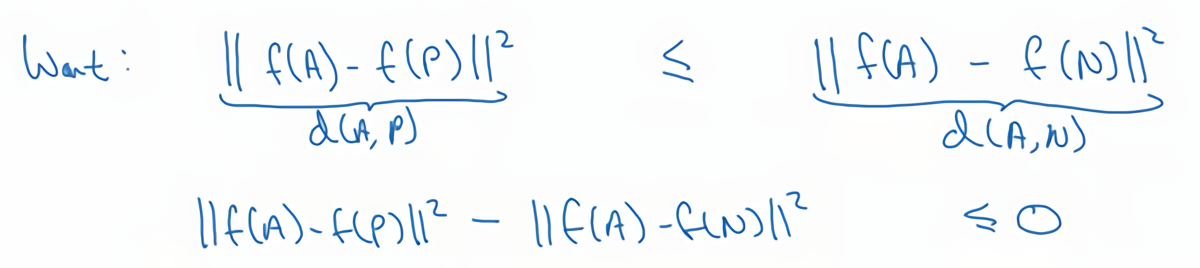 Want: ||f(A) - f(P)||² ≤ ||f(A) - f(N)||²
d(A,P) d(A,N)
||f(A) - f(P)||² - ||f(A) - f(N)||² ≤ 0